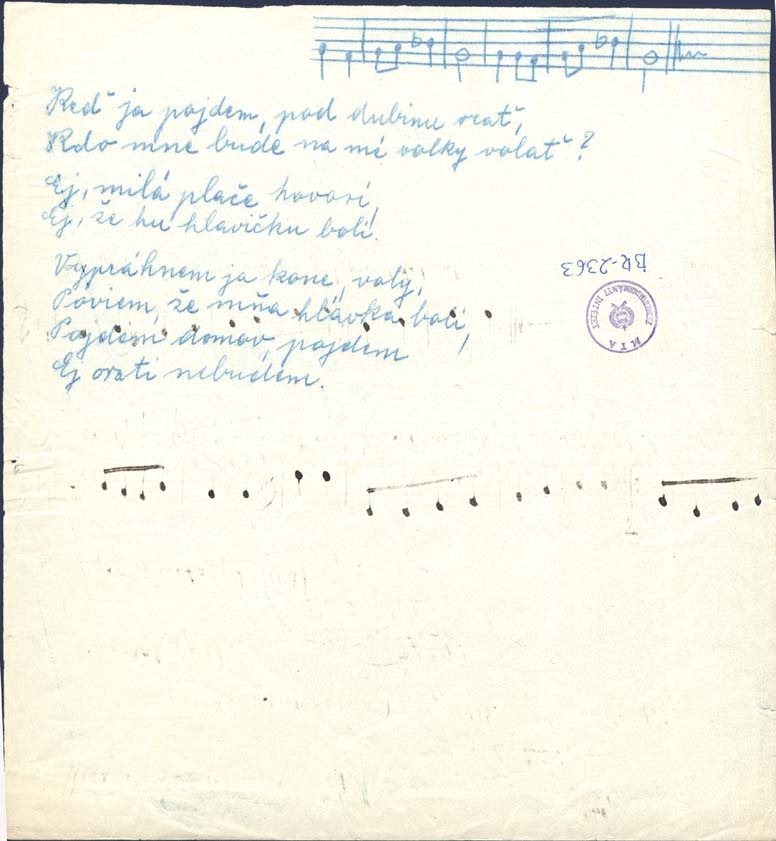 Keď ja pojdem, pod dubinu orať,
Kdo mne bude na mé volky volať?
Ej, milá plače hovorí,
Ej, že hu hlavičku bolí.
Vypráhnem ja kone, voly,
Poviem, že mňa hlávka bolí,
Pojdem domov, pojdem
Ej orati nebudem.
BR-2363
MTA